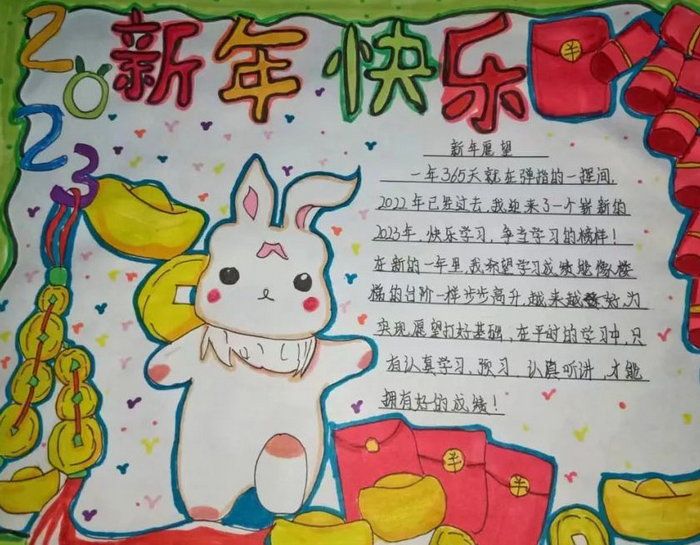 新年快乐
2023
新年愿望
一年365天就在弹指的一挥间,
2022年已经过去,我迎来了一个崭新的
2023年,快乐学习,争当学习的榜样!
在新的一年里,我希望学习成绩能像楼
梯的台阶一样步步高升,越来越好,为
实现愿望打好基础,在平时的学习中,只
有认真学习、预习、认真听讲,才能
拥有好的成绩!